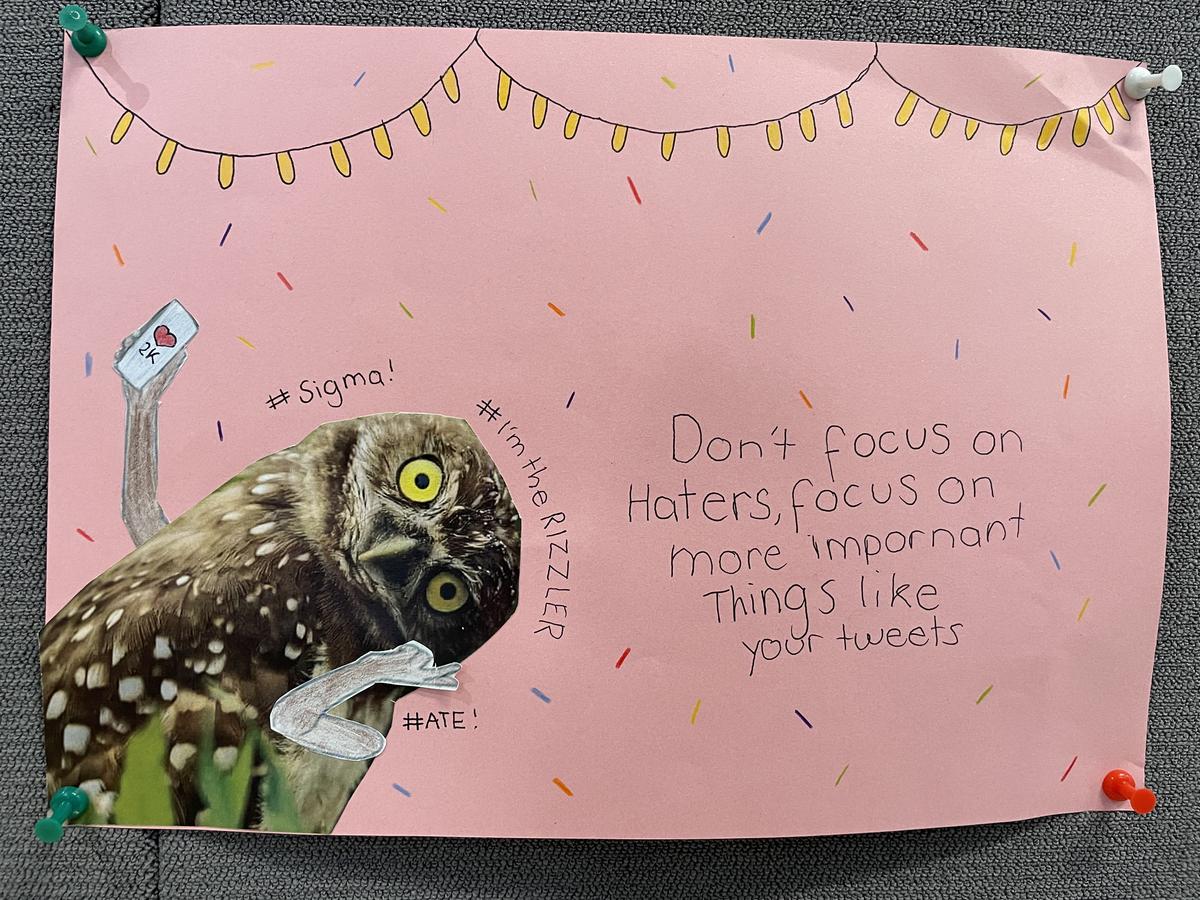 2K
#Sigma!
#I'mtheRIZZLER
Don't focus on
Haters, focus on
more impornant
Things like
your tweets
#ATE!